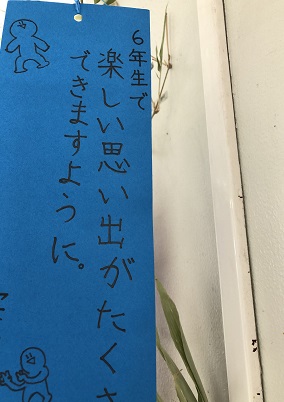 6年生で
楽しい思い出がたくさ
できますように。